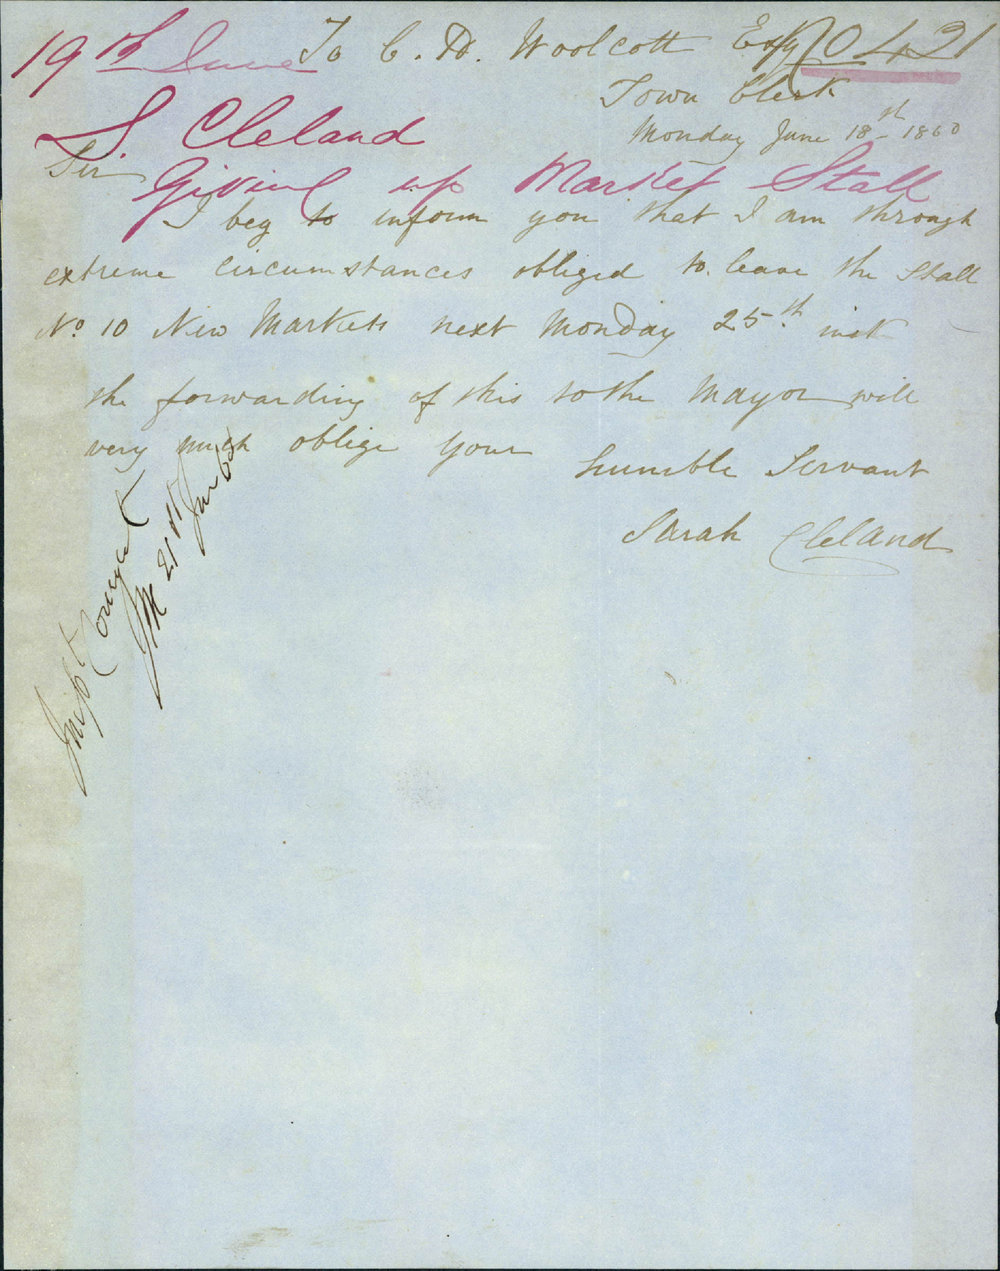 19th June To C. H. Woolcott Esqr No 421
Town Clerk
S. Cleland
Monday June 18th 1860
Sir
Giving up Market Stall
I beg to inform you that I am through
extreme circumstances obliged to leave the Stall
No 10 New Markets next Monday 25th inst
the forwarding of this to the Mayor will
very much oblige your humble Servant
Sarah Cleland
21st June 60